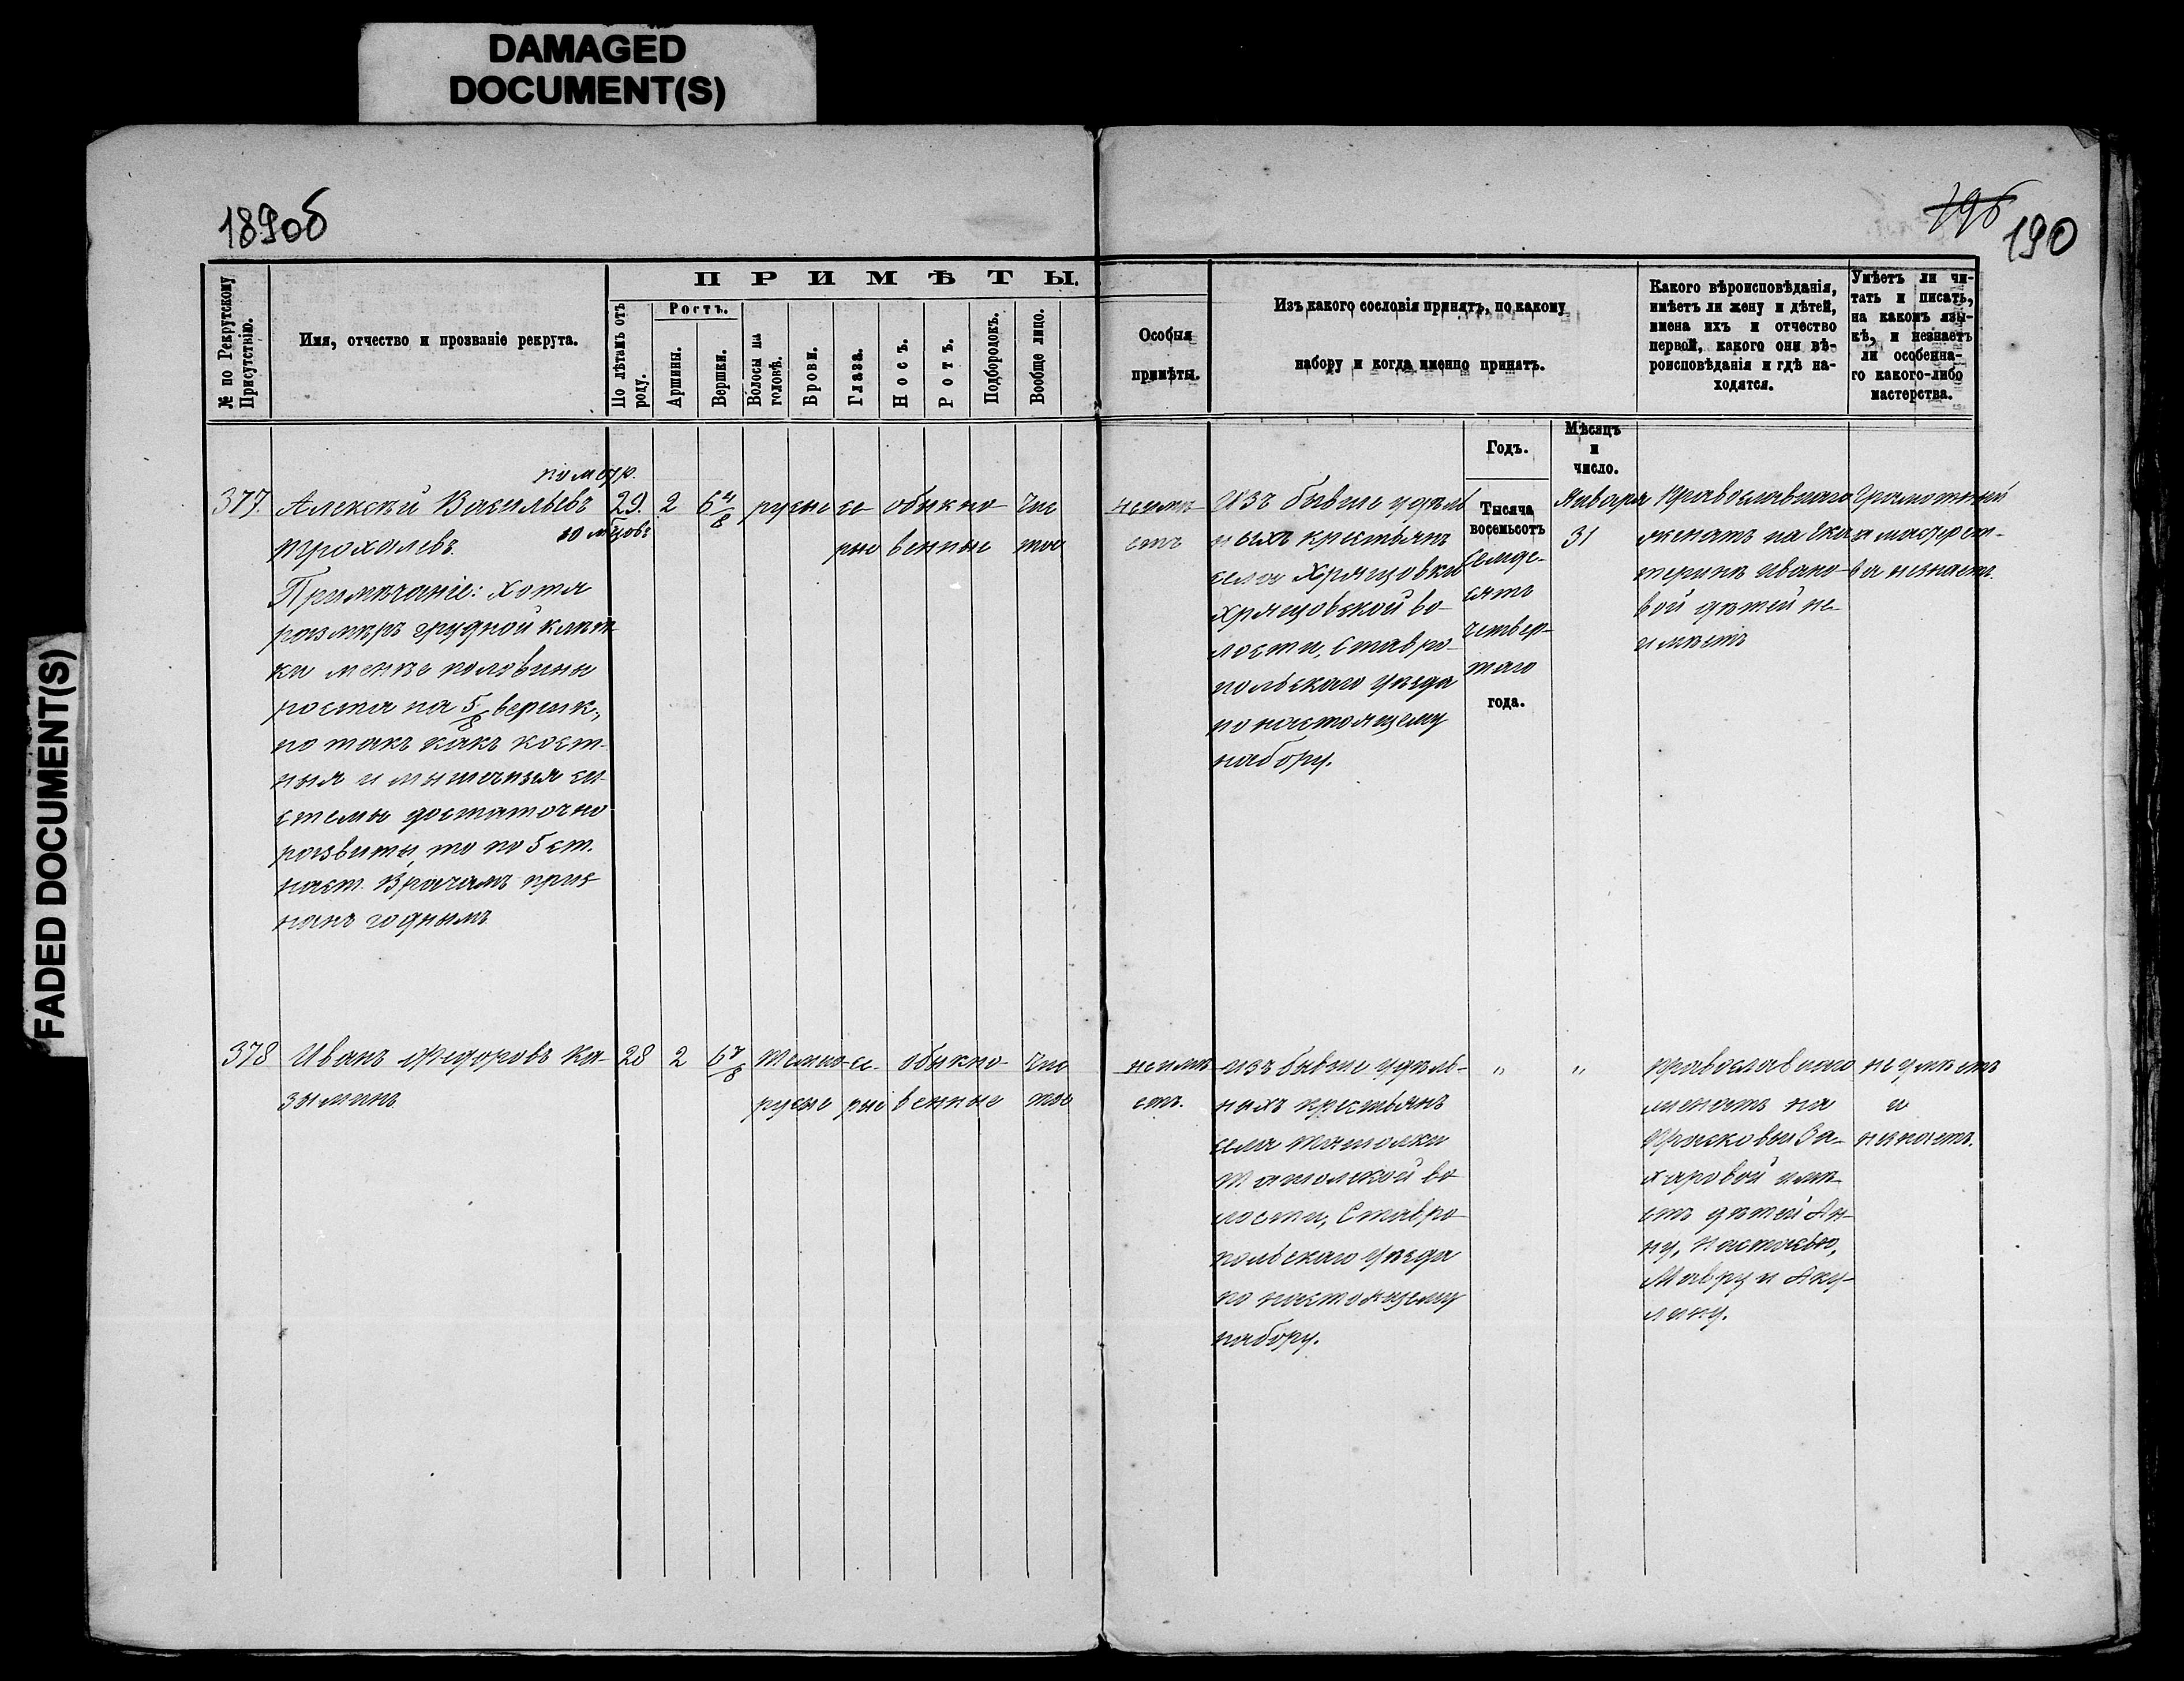 DAMAGED
DOCUMENT(S)
FADED DOCUMENT(S)
189об
196
190
№ по Рекрутскому
Присутствію.
Имя, отчество и прозваніе рекрута.
ПРИМѢТЫ.
По лѣтамъ отъ
роду.
Ростъ.
Аршины.
Вершки.
Волосы на
головѣ.
Брови.
Глаза.
Носъ.
Ротъ.
Подбородокъ.
Вообще лицо.
Особыя
примѣты.
Изъ какого сословія принятъ, по какому
набору и когда именно принятъ.
Какого вѣроисповѣданія,
имѣетъ ли жену и дѣтей,
имена ихъ и отчество
первой, какого они вѣ-
роисповѣданія и гдѣ на-
ходятся.
Умѣетъ ли чи-
тать и писать,
на какомъ язы-
кѣ, и незнаетъ
ли особенна-
го какого-либо
мастерства.
Годъ.
Мѣсяцъ
и
число.
377.
Алексѣй Васильевъ
Трохалевъ.
Примѣчаніе: хотя
размѣръ грудной клѣт-
ки менѣе половины
роста на 5/8 вершк.,
но такъ какъ кост-
ная и мышечная си-
стемы достаточно
развиты, то по 5 ст.
наст. Врачамъ приз-
нанъ годнымъ
29.
2
6 4/8
русые
се-
рые
обыкно-
венные
чис-
тое
неимѣ-
етъ
Изъ бывше удѣль-
ныхъ крестьянъ
села Хрящовки
Хрящовской во-
лости, Ставро-
польскаго уѣзда
по настоящему
набору.
Тысяча
восемьсотъ
семьде-
сятъ
четвер-
таго
года.
Января
31
Православнаго
женатъ на Ека-
теринѣ Ивано-
вой дѣтей не-
имѣетъ
Грамотный
и мастерст-
ва незнаетъ.
378
Иванъ Федоровъ Ка-
зыминъ.
28
2
6 7/8
темно-
русые
се-
рые
обыкно-
венные
чис-
тое
неимѣ-
етъ.
изъ бывше удѣль-
ныхъ крестьянъ
села Ташолки
Ташолской во-
лости, Ставро-
польскаго уѣзда
по настоящему
набору.
"
"
православнаго
женатъ на
Просковьи За-
харовой имѣ-
етъ дѣтей Ан-
ну, Настасью,
Мавру и Аку-
лину.
неумѣетъ
и
незнаетъ.